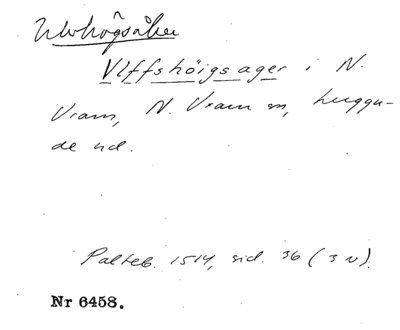 Ulvhögsåker
Vlffshöigsager i N.
Vram, N. Vram sn, Luggu-
de hd.
Palteb. 1514, sid. 36 (3 v).
Nr 6458.